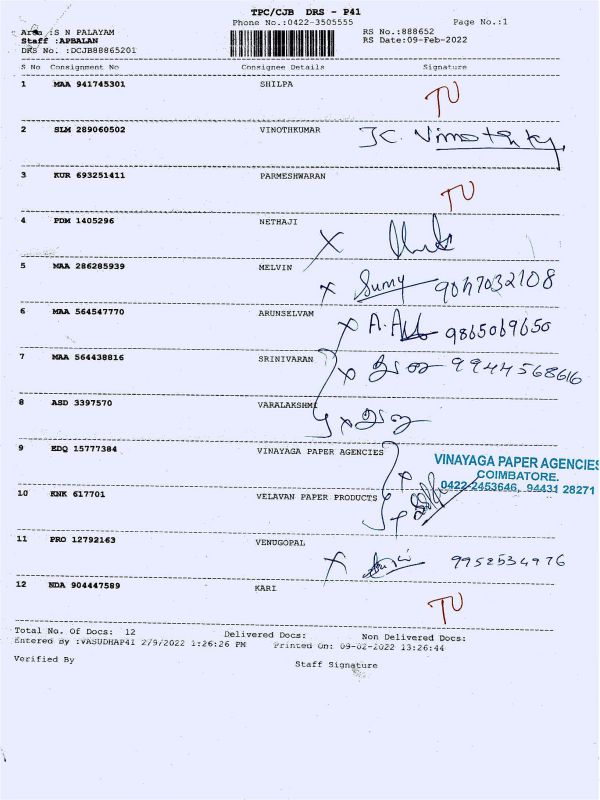 TPC/CJB DRS - P41
Phone No.:0422-3505555 Page No.:1
Area :S N PALAYAM RS No.:888652
Staff :APBALAN RS Date:09-Feb-2022
DRS No. :DCJB88865201
S No Consignment No Consignee Details Signature
1 MAA 941745301 SHILPA TU
2 SLM 289060502 VINOTHKUMAR
3 KUR 693251411 PARMESHWARAN TU
4 PDM 1405296 NETHAJI X
5 MAA 286285939 MELVIN X
6 MAA 564547770 ARUNSELVAM X 9865069650
7 MAA 564438816 SRINIVARAN X 99445 68616
8 ASD 3397570 VARALAKSHMI X
9 EDQ 15777384 VINAYAGA PAPER AGENCIES X
VINAYAGA PAPER AGENCIES
COIMBATORE.
0422-2453646, 94431 28271
10 KNK 617701 VELAVAN PAPER PRODUCTS
11 PRO 12792163 VENUGOPAL X 9952534976
12 NDA 904447589 KARI TU
Total No. Of Docs: 12 Delivered Docs: Non Delivered Docs:
Entered By :VASUDHAP41 2/9/2022 1:26:26 PM Printed On: 09-02-2022 13:26:44
Verified By Staff Signature